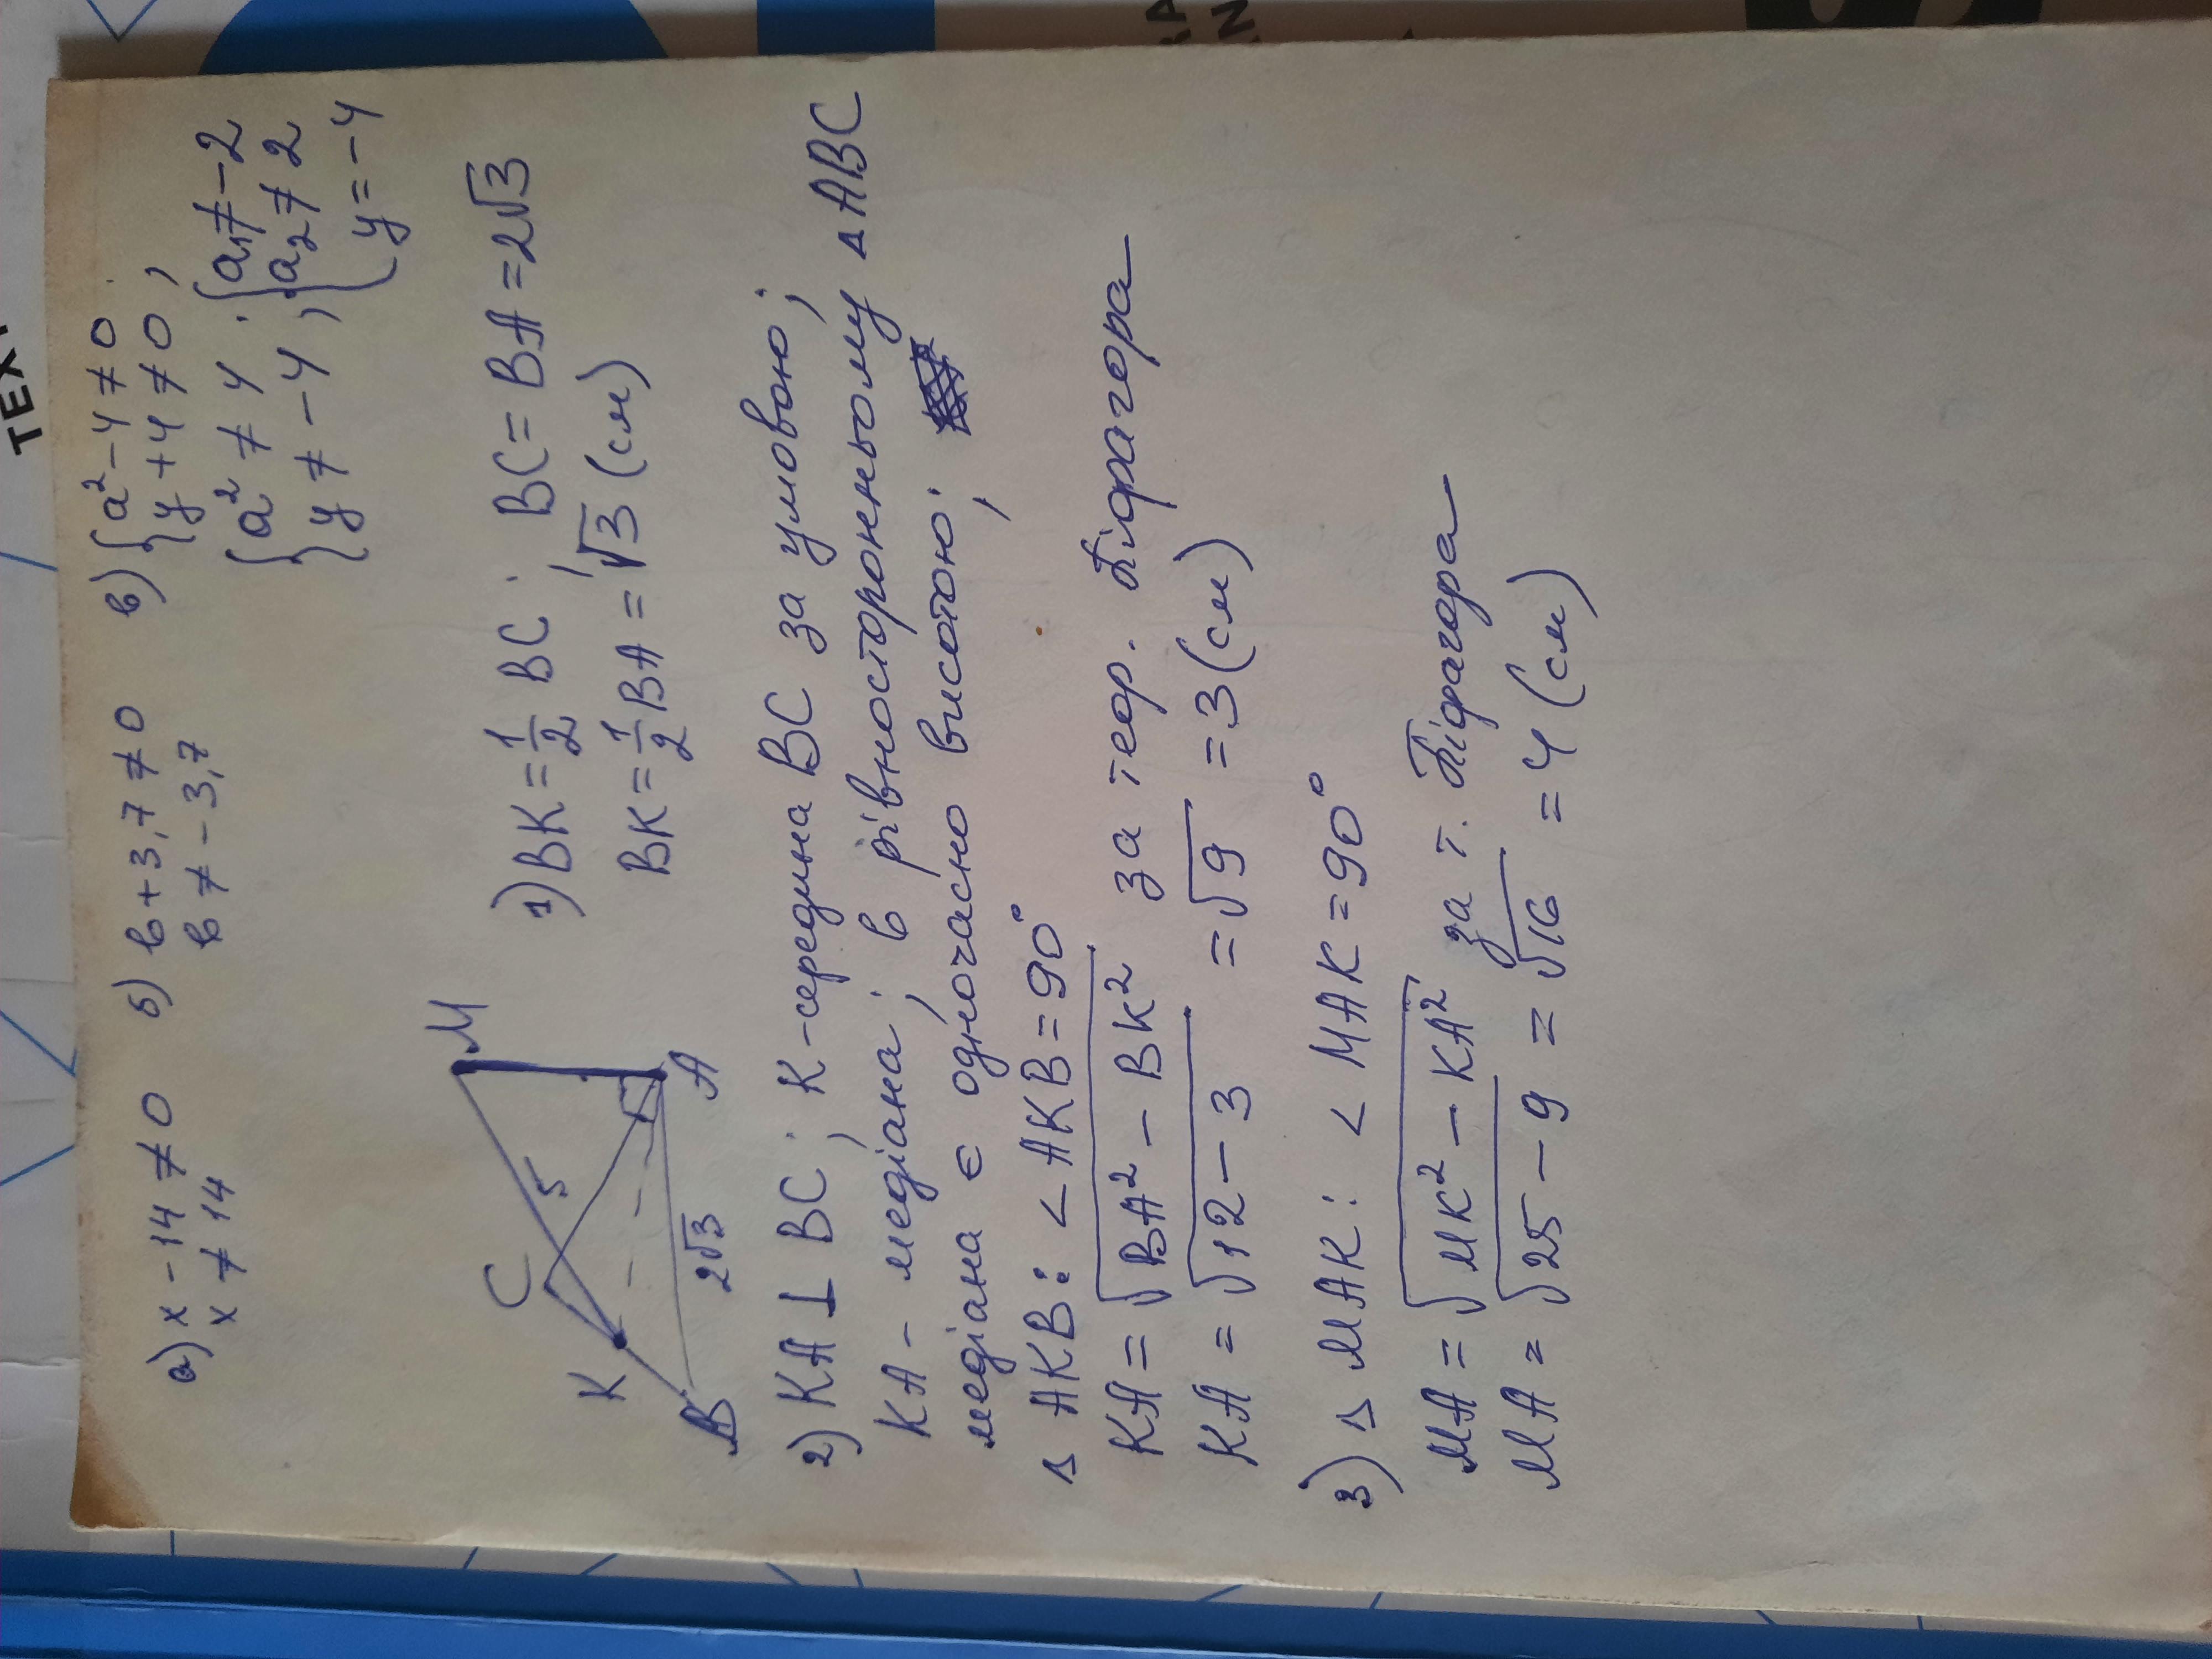 а) x - 14 ≠ 0
x ≠ 14
б) в + 3,7 ≠ 0
в ≠ - 3,7
в) { a² - 4 ≠ 0
y + 4 ≠ 0 ;
{ a² ≠ 4
y ≠ - 4 ;
{ a₁ ≠ - 2
a₂ ≠ 2
y = - 4
M
C
5
K
A
B
2√3
1) BK = 1/2 BC ; BC = BA = 2√3
BK = 1/2 BA = √3 (см)
2) KA ⊥ BC ; K - середина BC за умовою ;
KA - медіана ; в рівносторонньому △ ABC
медіана є одночасно висотою ;
△ AKB : < AKB = 90°
KA = √BA² - BK² за теор. Піфагора
KA = √12 - 3 = √9 = 3 (см)
3) △ MAK : < MAK = 90°
MA = √MK² - KA² за т. Піфагора
MA = √25 - 9 = √16 = 4 (см)
TEX